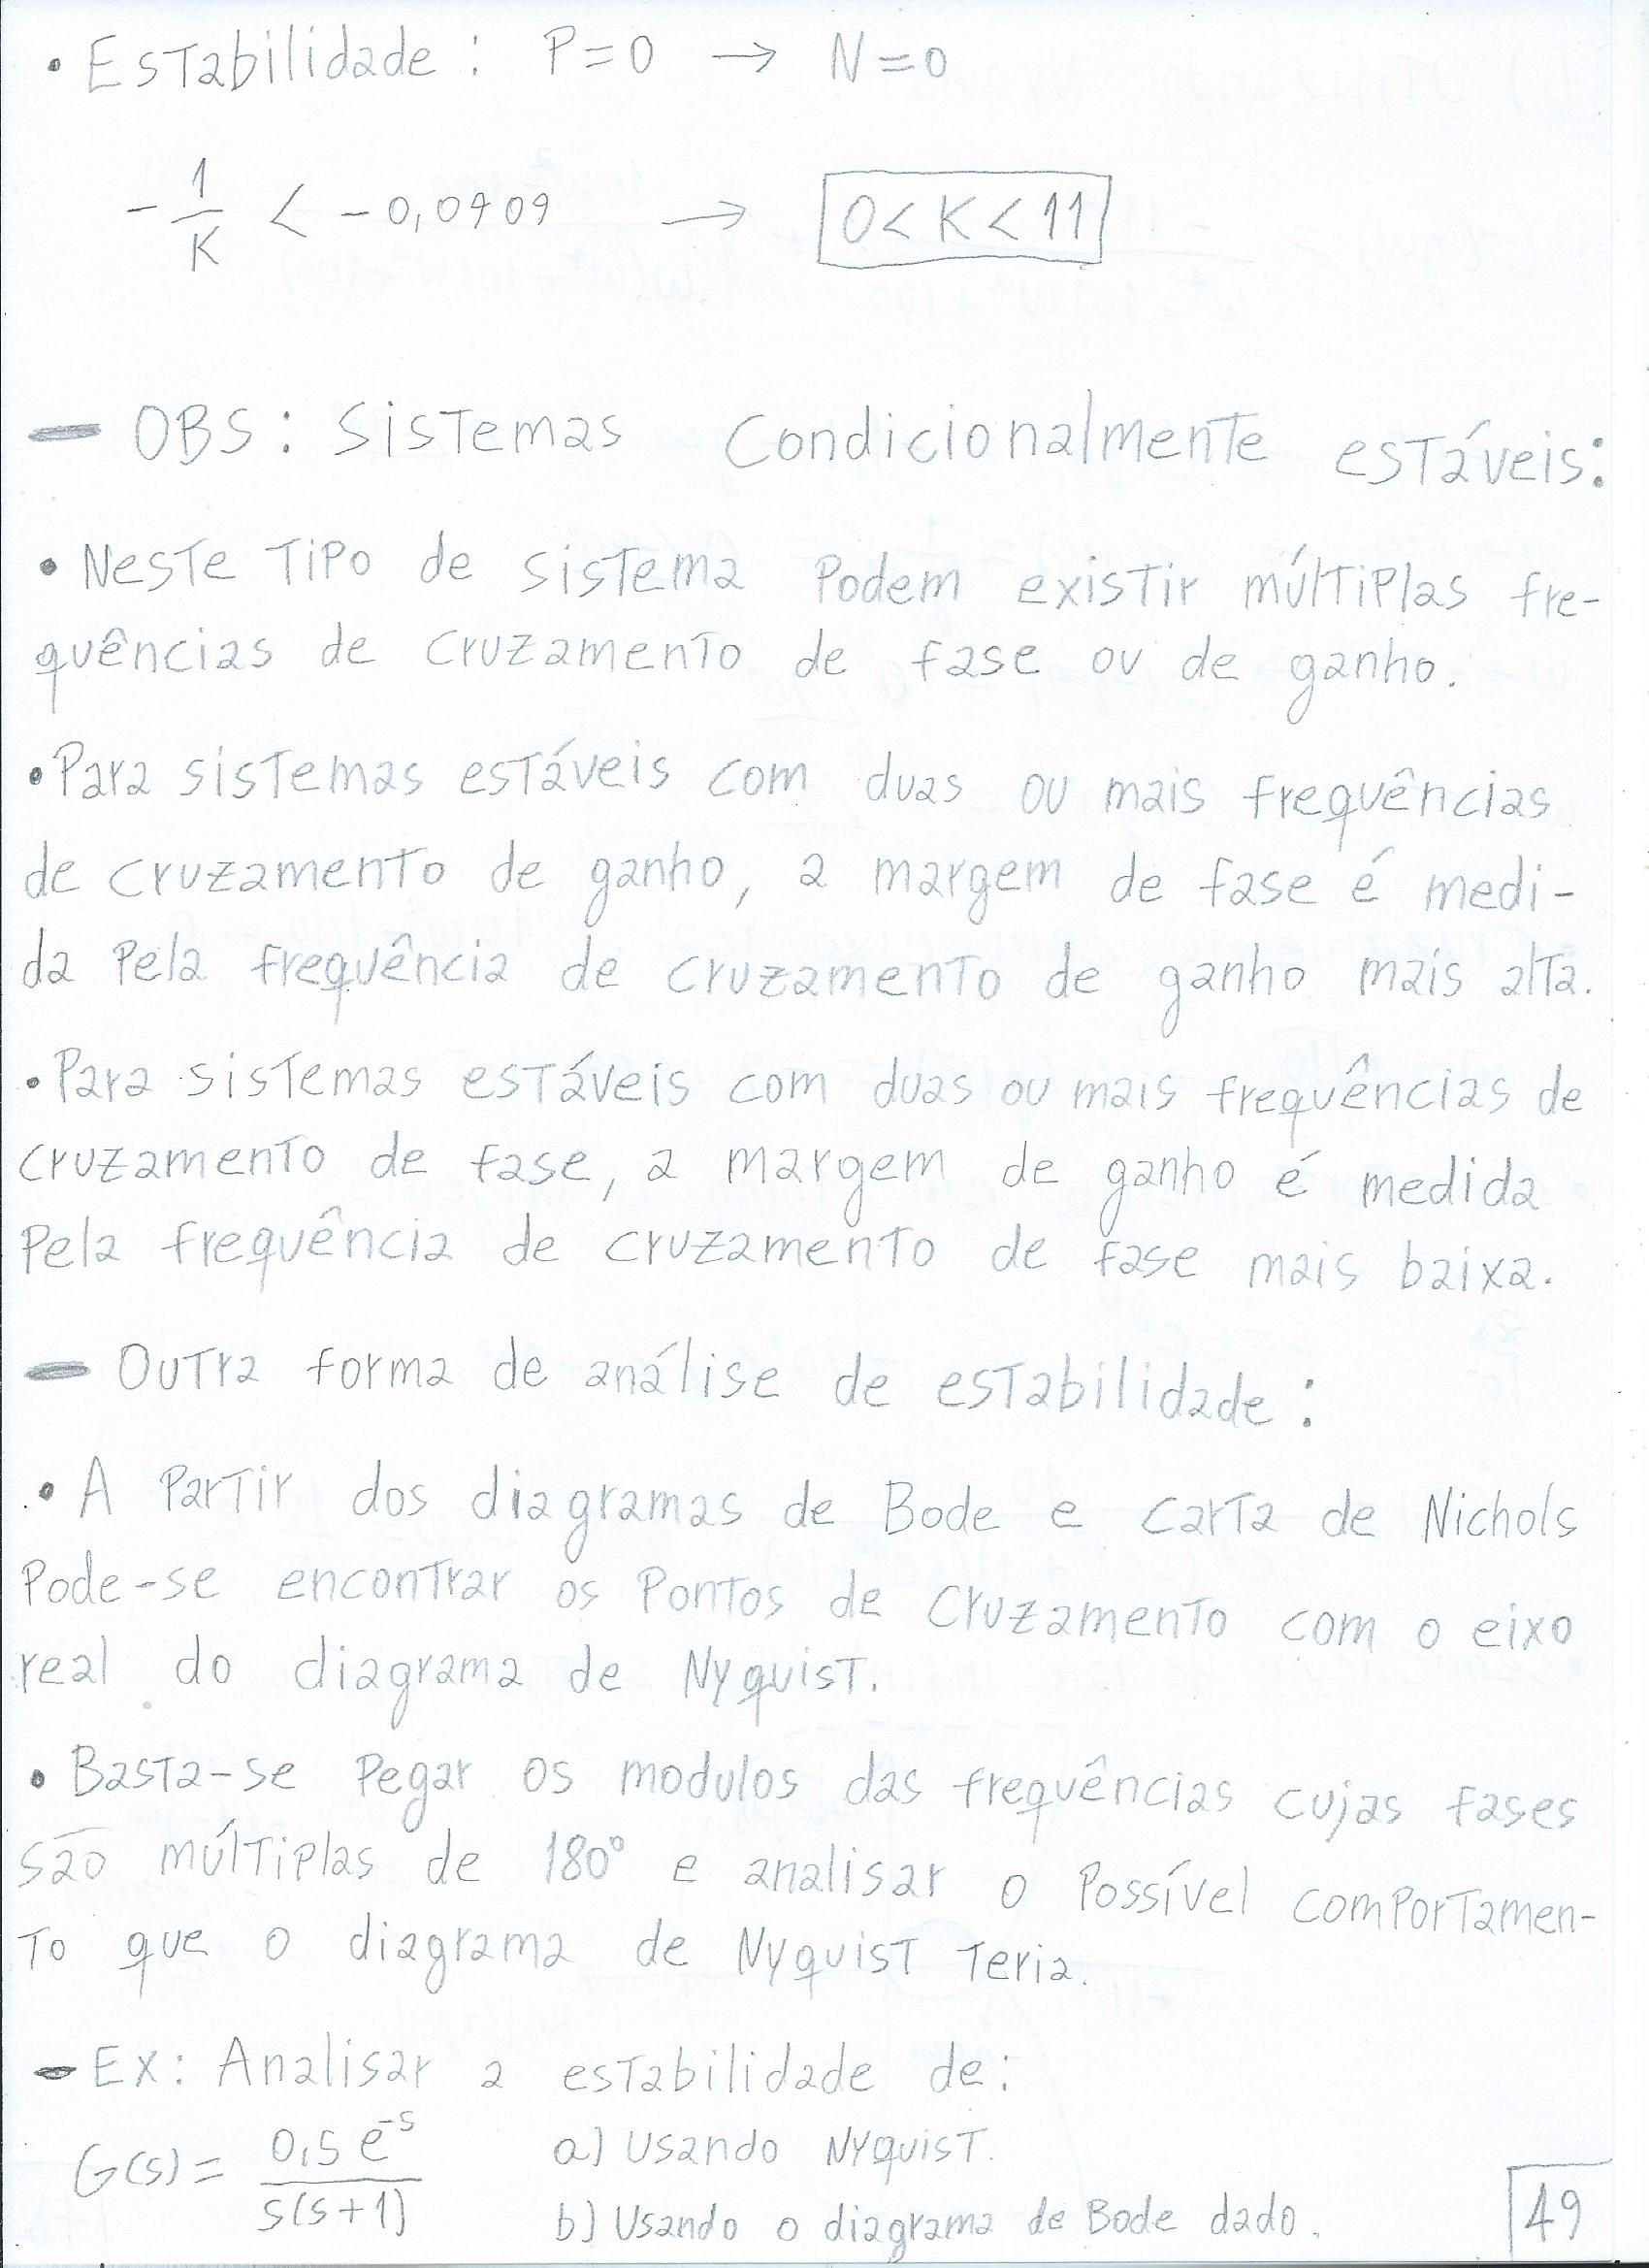 • Estabilidade: P=0 → N=0
-1/K < -0,0909 → 0<K<11
- OBS: Sistemas Condicionalmente estáveis:
• Neste tipo de sistema podem existir múltiplas fre-
quências de cruzamento de fase ou de ganho.
• Para sistemas estáveis com duas ou mais frequências
de cruzamento de ganho, a margem de fase é medi-
da pela frequência de cruzamento de ganho mais alta.
• Para sistemas estáveis com duas ou mais frequências de
cruzamento de fase, a margem de ganho é medida
pela frequência de cruzamento de fase mais baixa.
- Outra forma de análise de estabilidade:
• A partir dos diagramas de Bode e carta de Nichols
pode-se encontrar os pontos de cruzamento com o eixo
real do diagrama de Nyquist.
• Basta-se pegar os modulos das frequências cujas fases
são múltiplas de 180° e analisar o possível comportamen-
to que o diagrama de Nyquist teria.
- Ex: Analisar a estabilidade de:
G(s) = 0,5 e^-s / s(s+1)
a) Usando Nyquist.
b) Usando o diagrama de Bode dado.
49